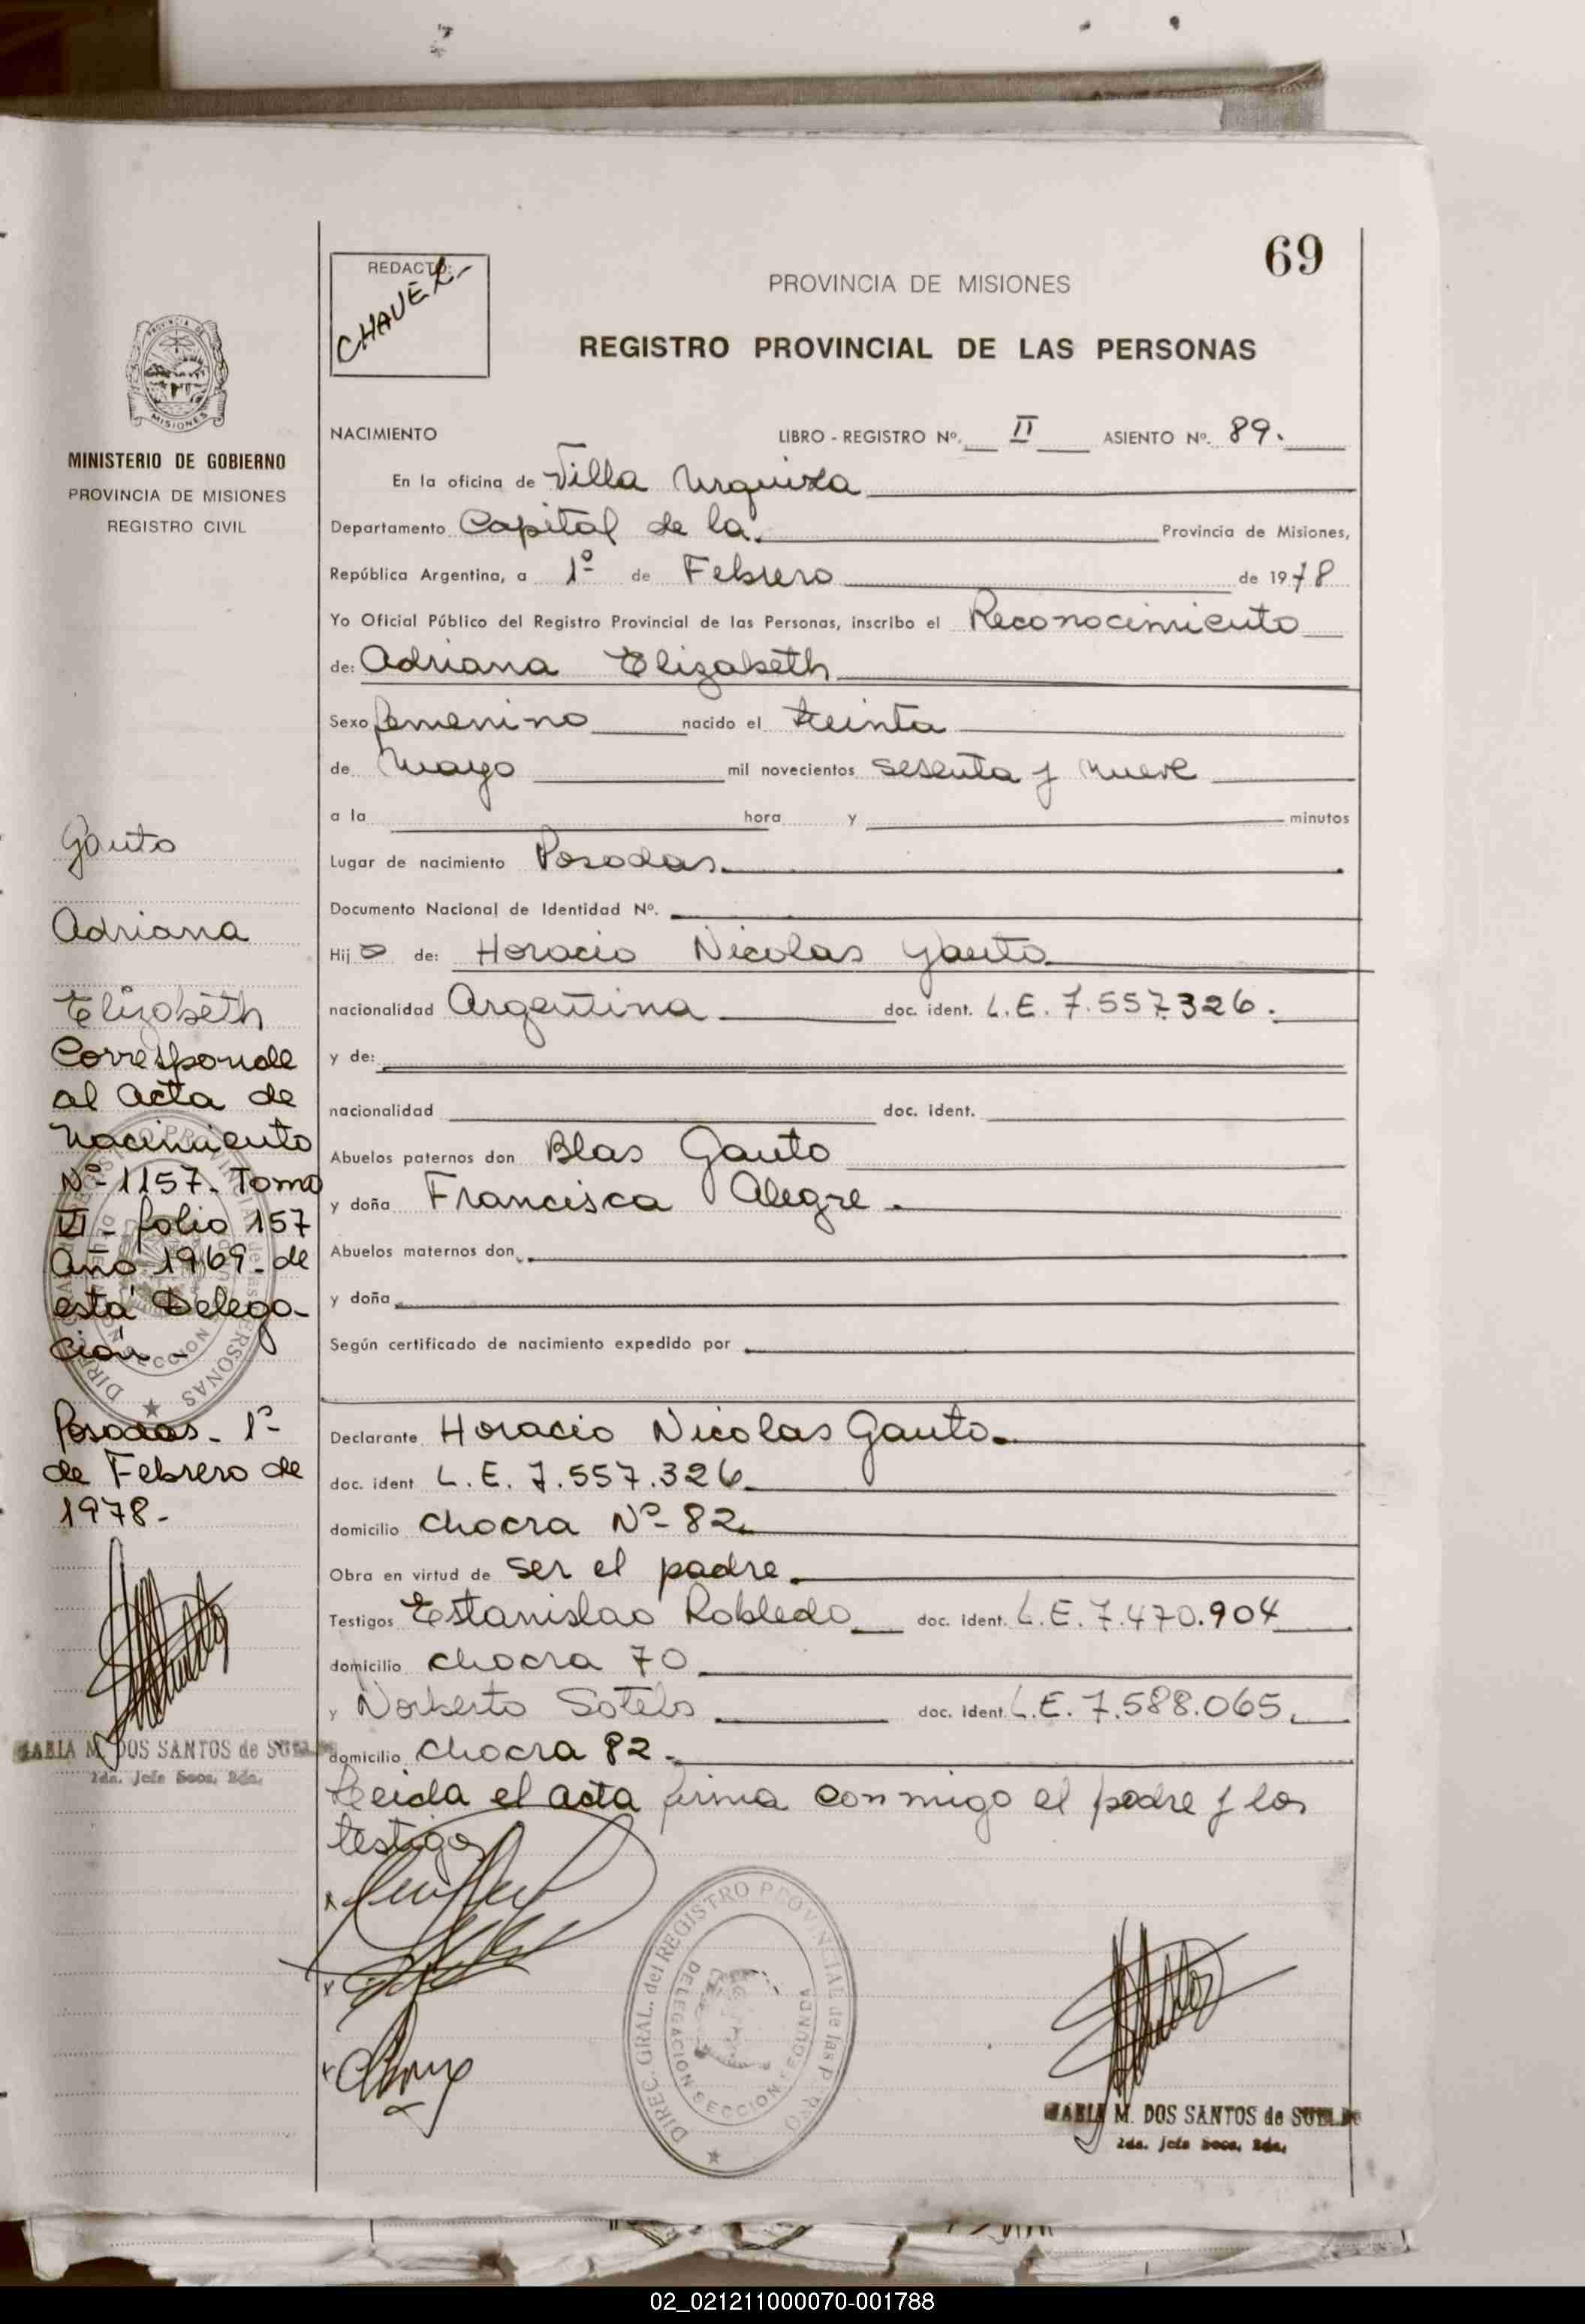 69
REDACTO:
CHAVEZ-
PROVINCIA DE MISIONES
REGISTRO PROVINCIAL DE LAS PERSONAS
MISIONES
MINISTERIO DE GOBIERNO
PROVINCIA DE MISIONES
REGISTRO CIVIL
NACIMIENTO LIBRO - REGISTRO Nº. II ASIENTO Nº. 89.
En la oficina de Villa Urquiza
Departamento Capital de la. Provincia de Misiones,
República Argentina, a 1º de Febrero de 1978
Yo Oficial Público del Registro Provincial de las Personas, inscribo el Reconocimiento
de: Adriana Elizabeth
Sexo femenino nacido el treinta
de Mayo mil novecientos sesenta y nueve
a la hora y minutos
Lugar de nacimiento Posadas.
Documento Nacional de Identidad Nº.
Hij a de: Horacio Nicolas Gauto
nacionalidad Argentina doc. ident. L.E. 7.557.326.
y de:
nacionalidad doc. ident.
Abuelos paternos don Blas Gauto
y doña Francisca Alegre.
Abuelos maternos don
y doña
Según certificado de nacimiento expedido por
Declarante Horacio Nicolas Gauto.
doc. ident L.E. 7.557.326
domicilio chacra Nº 82
Obra en virtud de ser el padre.
Testigos Estanislao Robledo doc. ident. L.E. 7.470.904
domicilio chacra 70
y Norberto Sotelo doc. ident. L.E. 7.588.065.
domicilio chacra 82.
Leida el acta firma conmigo el padre y los
testigos
Gauto
Adriana
Elizabeth
Corresponde
al acta de
Nacimiento
Nº 1157. Tomo
VI - folio 157
Año 1969 - de
está Delega-
ción -
Posadas - 1º
de Febrero de
1978-
MARIA M. DOS SANTOS de
2da. Jefe Secc. 2da.
DIREC. GRAL. del REGISTRO PROVINCIAL de las PERSONAS
DELEGACION SECCION SEGUNDA
MARIA M. DOS SANTOS de
2da. Jefe Secc. 2da.
02_021211000070-001788